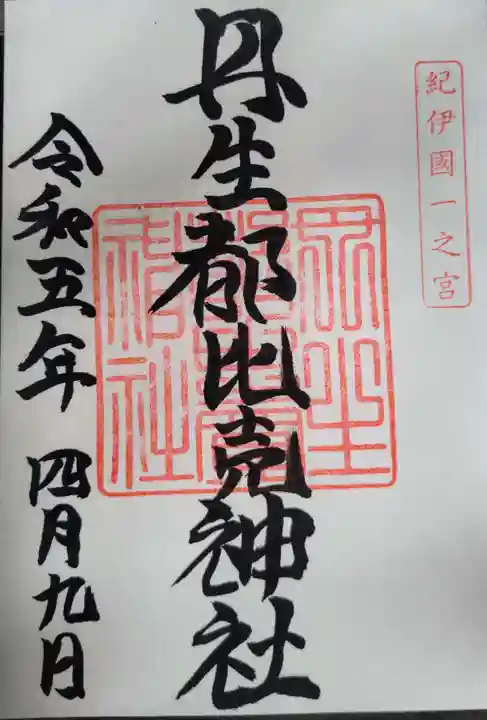 紀伊國一之宮
丹生都比売神社
令和五年 四月九日
丹生
都比賣
神社